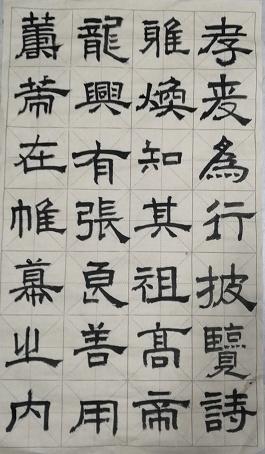 孝友為行披覽詩
雅煥知其祖高帝
龍興有張良善用
籌策在帷幕之内